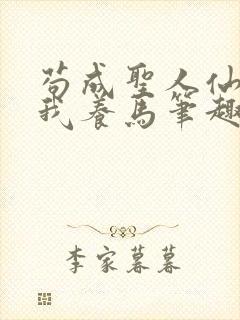 苟成聖人仙
我養馬筆趣
李家暮暮